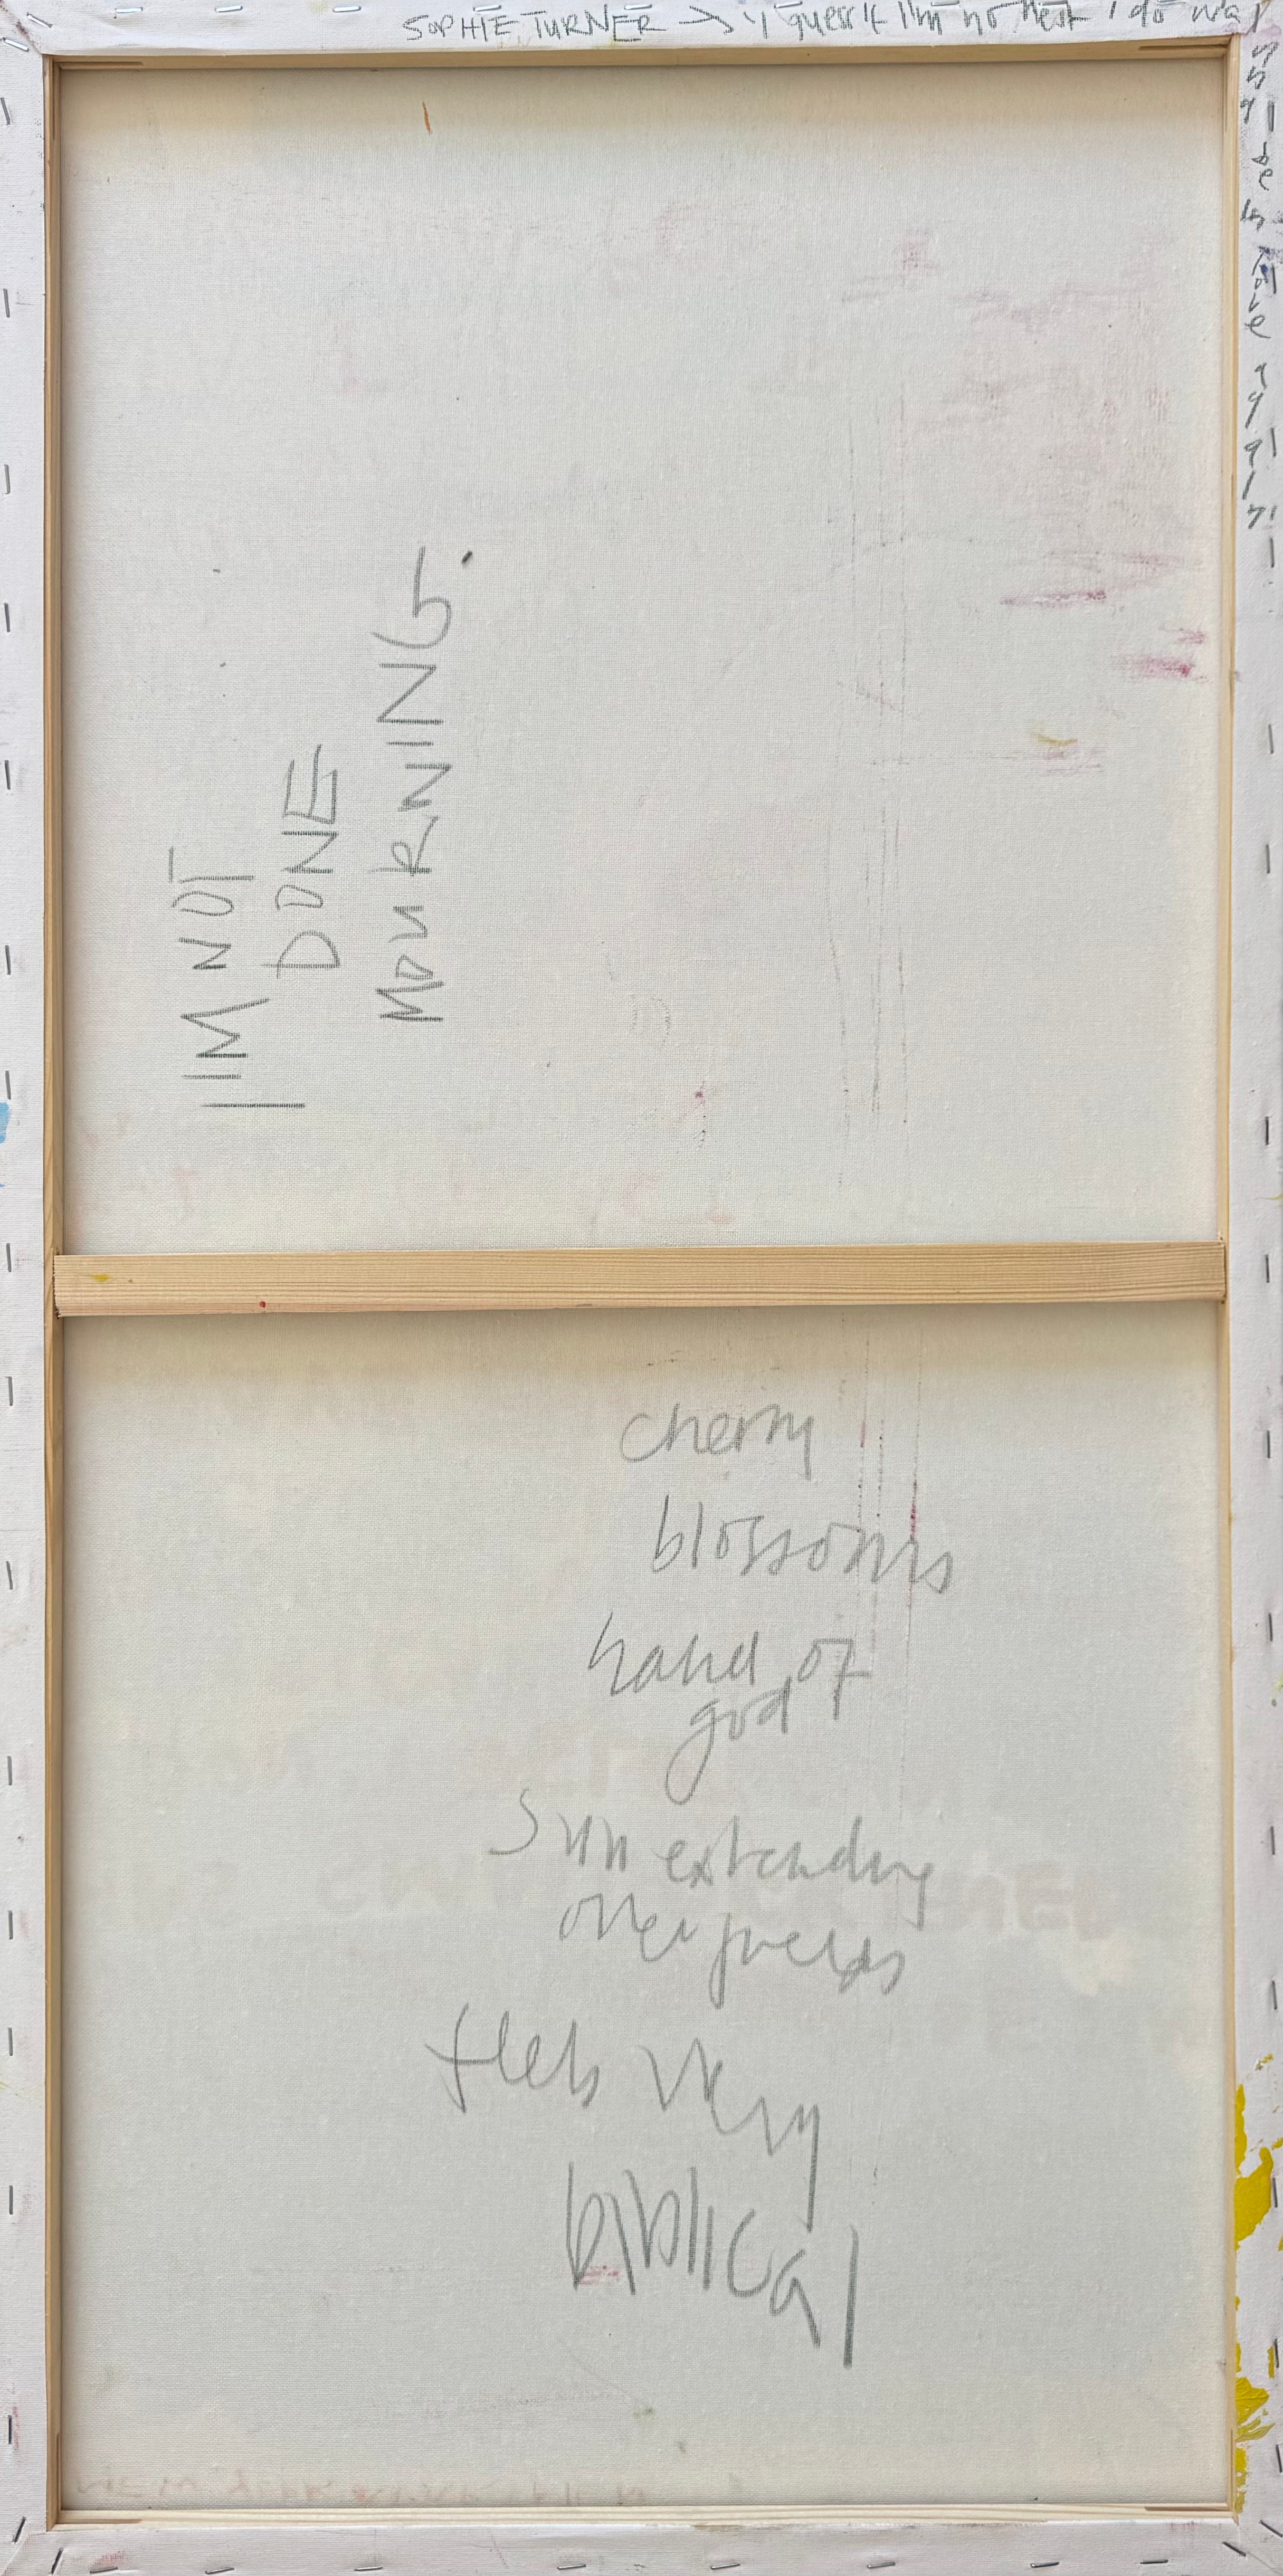 SOPHIE TURNER → "I guess if I'm not next I do wanna
be in love again
I'M NOT
DONE
MOURNING.
cherry
blossoms
hand of
god
sun extending
over fields
feels very
biblical